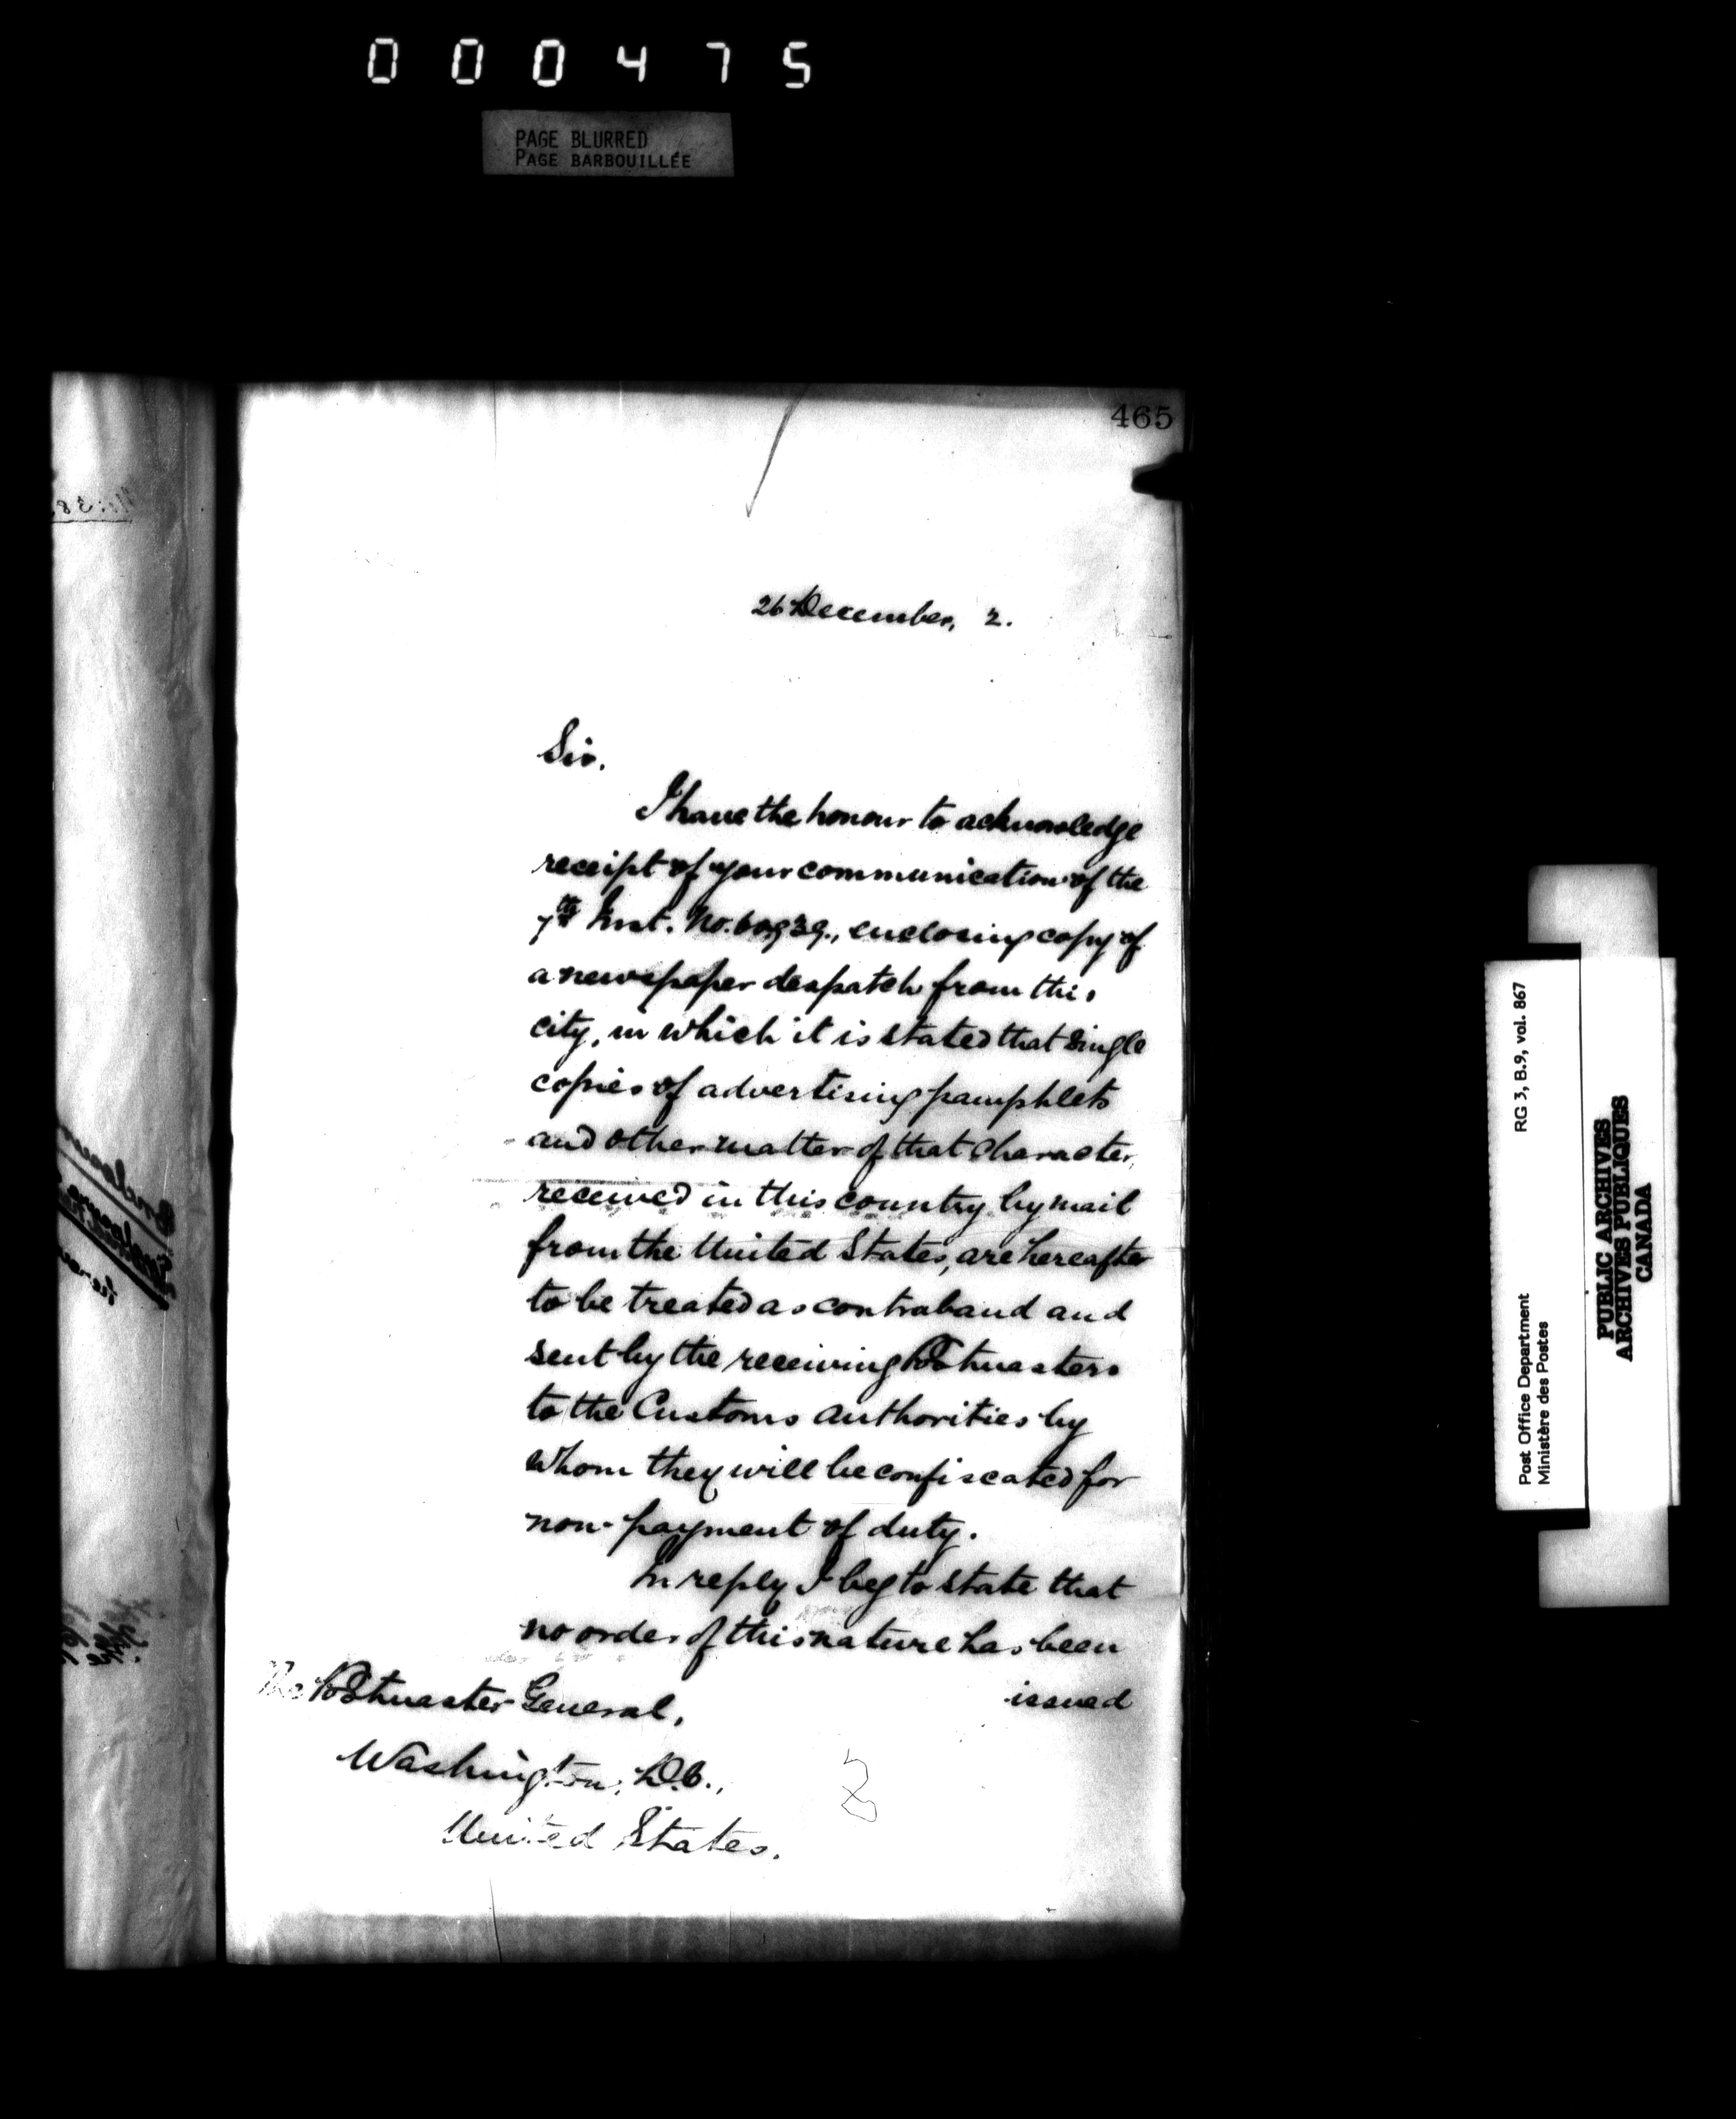 000475
PAGE BLURRED
PAGE BARBOUILLÉE
465
26 December, 2.
Sir.
I have the honour to acknowledge
receipt of your communication of the
7th Inst. No. 60939., enclosing copy of
a newspaper despatch from this
city, in which it is stated that single
copies of advertising pamphlets
and other matter of that character,
received in this country by mail
from the United States, are hereafter
to be treated as contraband and
sent by the receiving Postmasters
to the Customs authorities by
whom they will be confiscated for
non-payment of duty.
In reply I beg to state that
no order of this nature has been
issued
The Postmaster General,
Washington, D.C.,
United States.
RG 3, B.9, vol. 867
Post Office Department
Ministère des Postes
PUBLIC ARCHIVES
ARCHIVES PUBLIQUES
CANADA